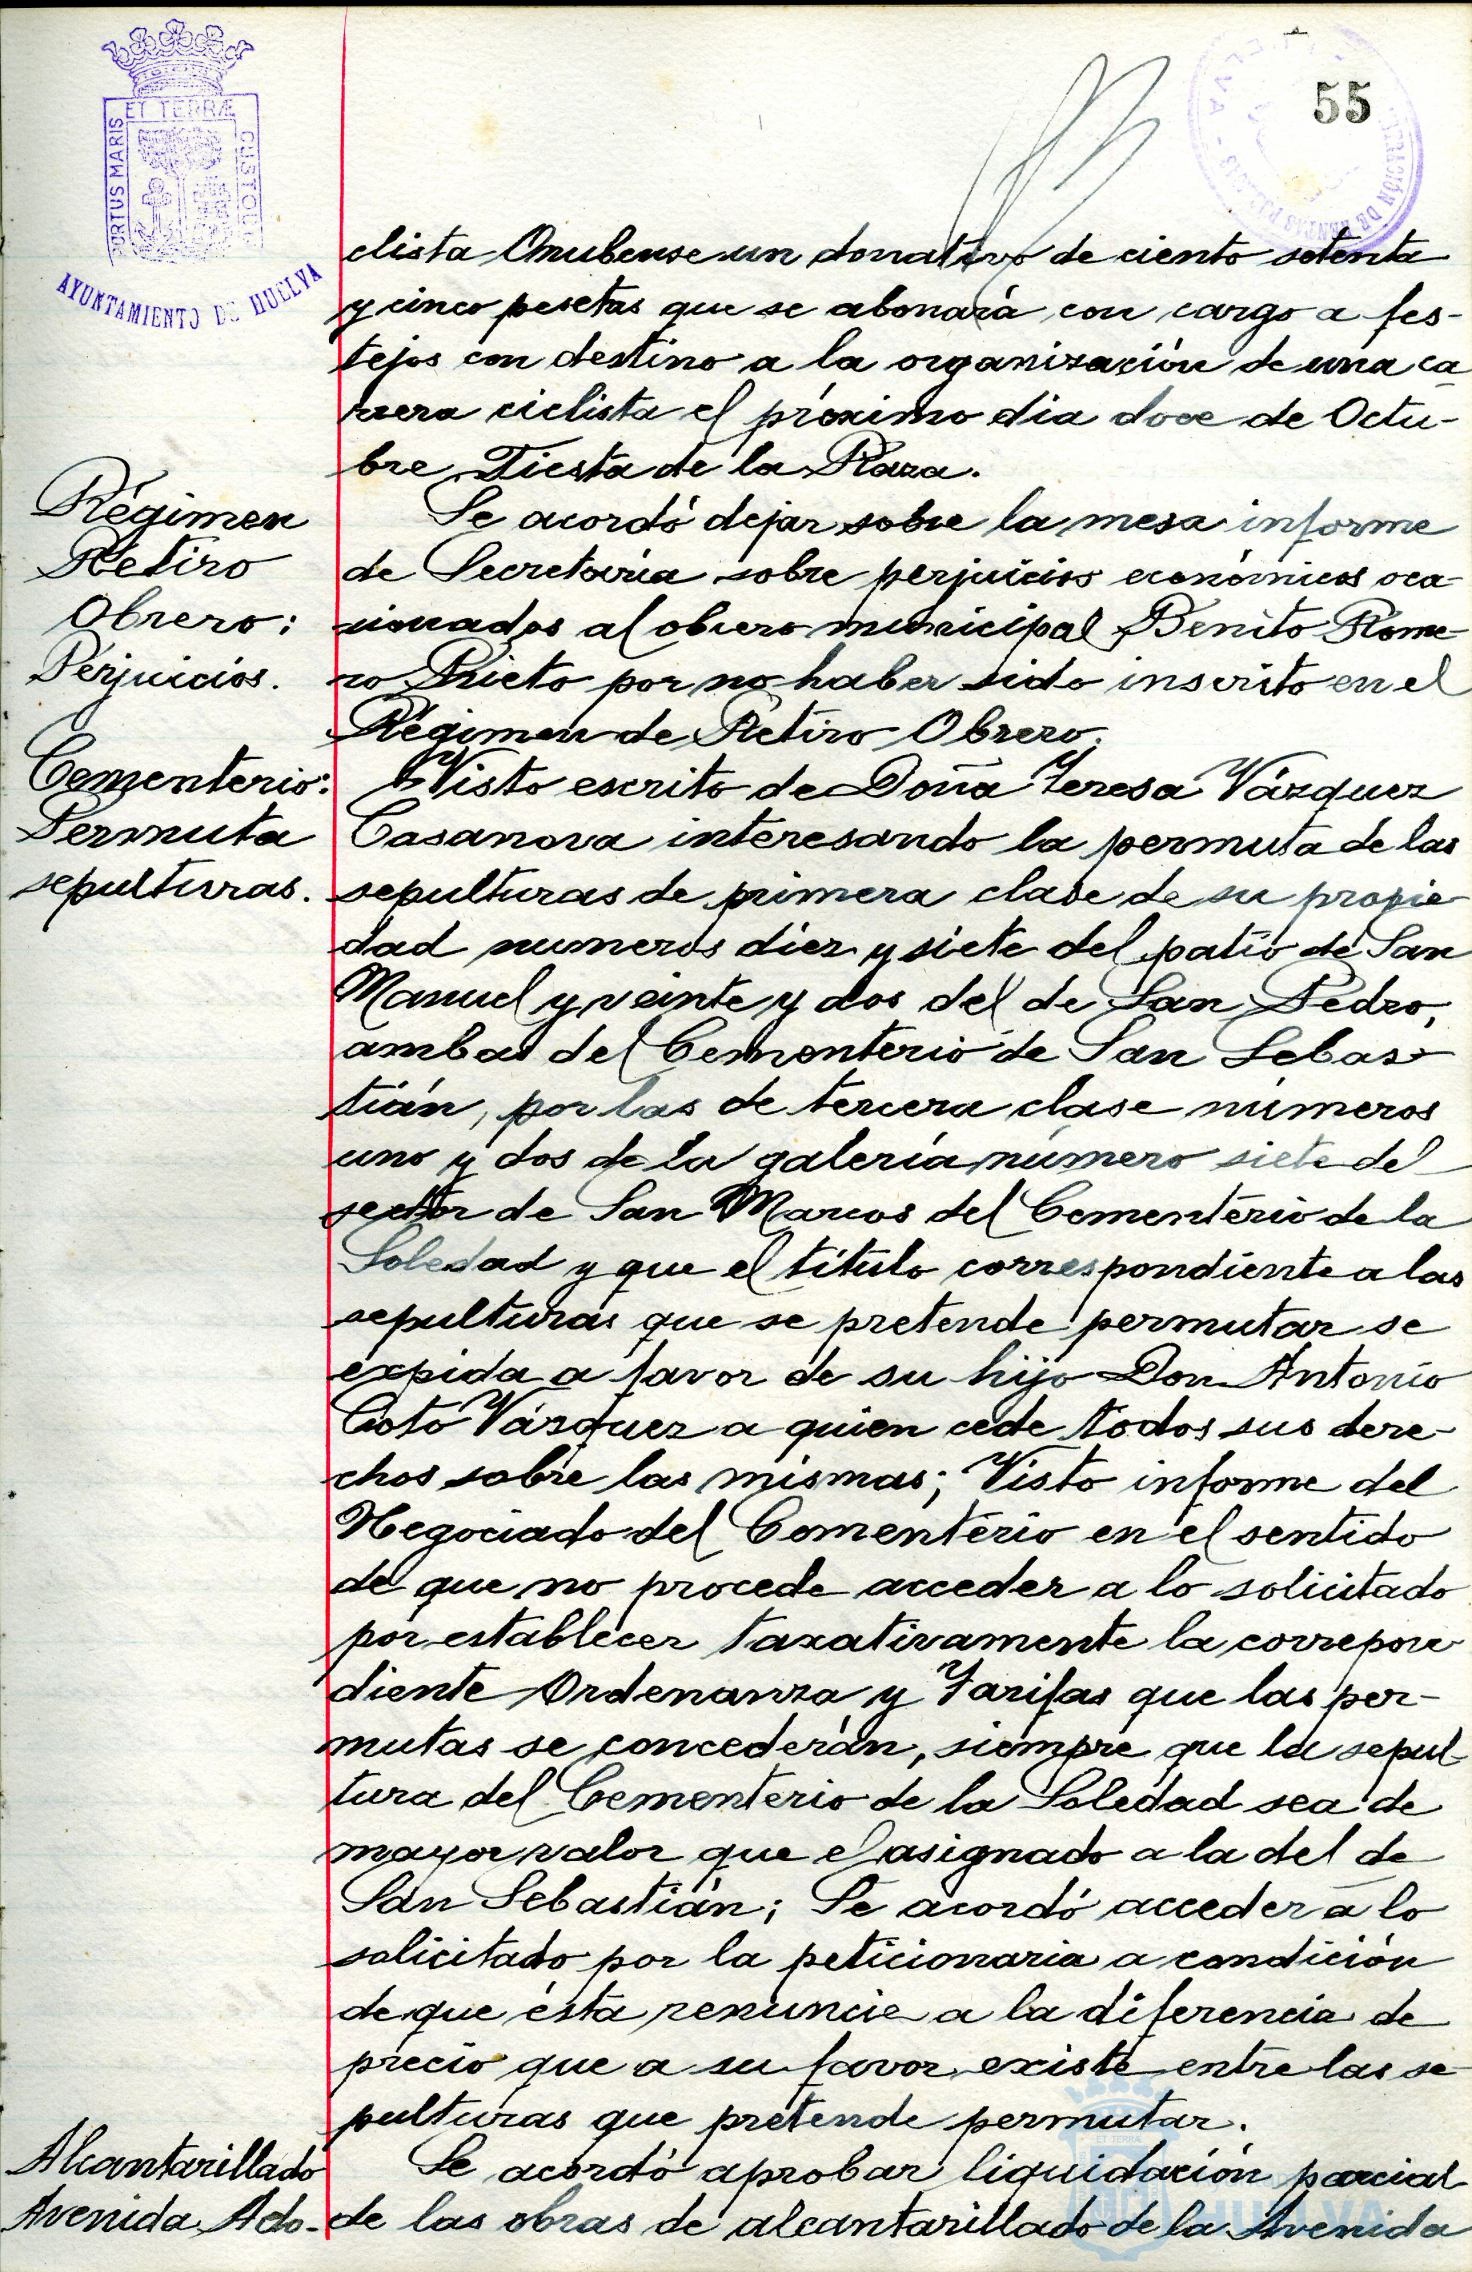 55
ET TERRÆ
PORTUS MARIS
CUSTODIA
AYUNTAMIENTO DE HUELVA
clista Onubense un donativo de ciento setenta
y cinco pesetas que se abonará con cargo a fes-
tejos con destino a la organización de una ca
rrera ciclista el próximo dia doce de Octu-
bre, Fiesta de la Raza.
Régimen
Retiro
Obrero:
Perjuicios.
Se acordó dejar sobre la mesa informe
de Secretaria sobre perjuicios económicos oca-
sionados al obrero municipal Benito Rome-
ro Prieto por no haber sido inscrito en el
Régimen de Retiro Obrero.
Cementerio:
Permuta
sepulturas.
Visto escrito de Doña Teresa Vázquez
Casanova interesando la permuta de las
sepulturas de primera clase de su propie-
dad numeros diez y siete del patio de San
Manuel y veinte y dos del de San Pedro,
ambas del Cementerio de San Sebas-
tián, por las de tercera clase números
uno y dos de la galería número siete del
sector de San Marcos del Cementerio de la
Soledad y que el título correspondiente a las
sepulturas que se pretende permutar se
expida a favor de su hijo Don Antonio
Coto Vázquez a quien cede todos sus dere-
chos sobre las mismas; Visto informe del
Negociado del Cementerio en el sentido
de que no procede acceder a lo solicitado
por establecer taxativamente la correpon-
diente Ordenanza y Tarifas que las per-
mutas se concederán, siempre que la sepul-
tura del Cementerio de la Soledad sea de
mayor valor que el asignado a la del de
San Sebastián; Se acordó acceder a lo
solicitado por la peticionaria a condición
de que ésta renuncie a la diferencia de
precio que a su favor existe entre las se-
pulturas que pretende permutar.
Alcantarillado
Avenida Ado-
Se acordó aprobar liquidación parcial
de las obras de alcantarillado de la Avenida
HUELVA